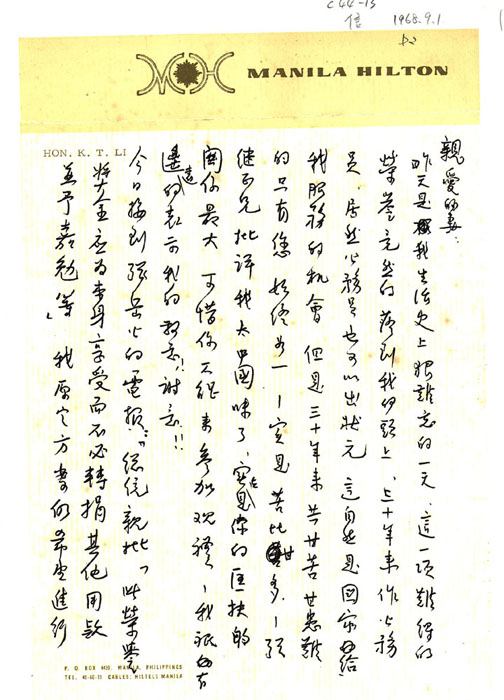 C44-15
信 1968.9.1
D2
MANILA HILTON
HON. K. T. LI
親愛的妻：
昨天是我生活史上很難忘的一天、這一項難得的
榮譽竟然的落到我的頭上、三十年來作公務
員、居然公務員也可以出狀元 這自然是國家給
我服務的機會 但是三十年來共甘苦共患難
的只有您 始終如一－實是苦比甘多、－張
繼正兄批評我太中國味了、實在是您的匡扶的
關係最大 可惜你不能來參加觀禮、我祇好在
遙遠的表示我的敬意！謝意!!
今日接到張岳公的電報：總統親批「此榮譽
獎金應為本身享受而不必轉捐其他用款
並予嘉勉等」 我原定方案仍希望進行
P. O. BOX 4410, MANILA, PHILIPPINES
CABLES: HILTELS MANILA